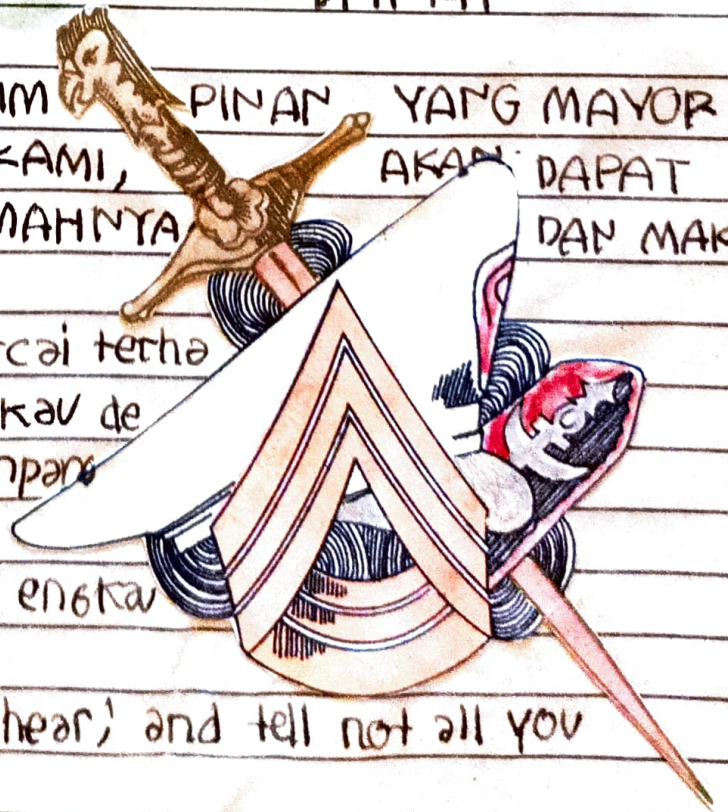 PINAN YANG MAYOR
KAMI, AKAN DAPAT
MAHNYA DAN MAK
cai terha
kau de
npang
engkau
hear; and tell not all you